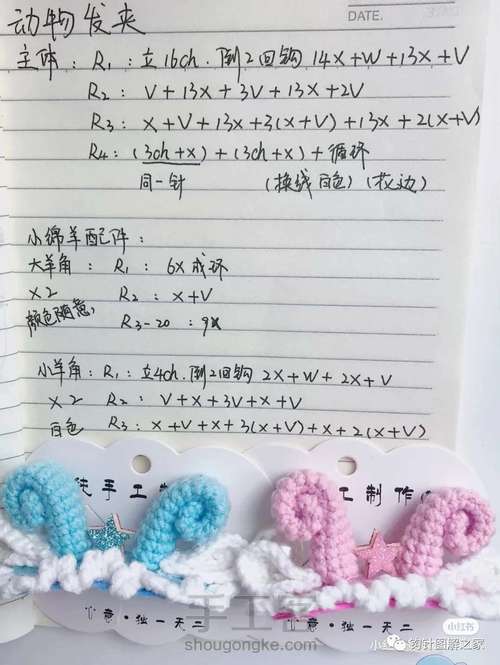 动物发夹
DATE.
主体：R₁：立16ch.倒2回钩 14X+W+13X+V
R₂：V+13X+3V+13X+2V
R₃：X+V+13X+3(X+V)+13X+2(X+V)
R₄：(3ch+X)+(3ch+X)+循环
同一针 (换线白色)(花边)
小绵羊配件：
大羊角：R₁：6X成环
X2 R₂：X+V
颜色随意, R₃-20：9X
小羊角：R₁：立4ch.倒2回钩 2X+W+2X+V
X2 R₂：V+X+3V+X+V
白色 R₃：X+V+X+3(X+V)+X+2(X+V)
纯手工制
工制作
心意·独一无二
心意·独一无二
手工客
shougongke.com
小红书
钩针图解之家